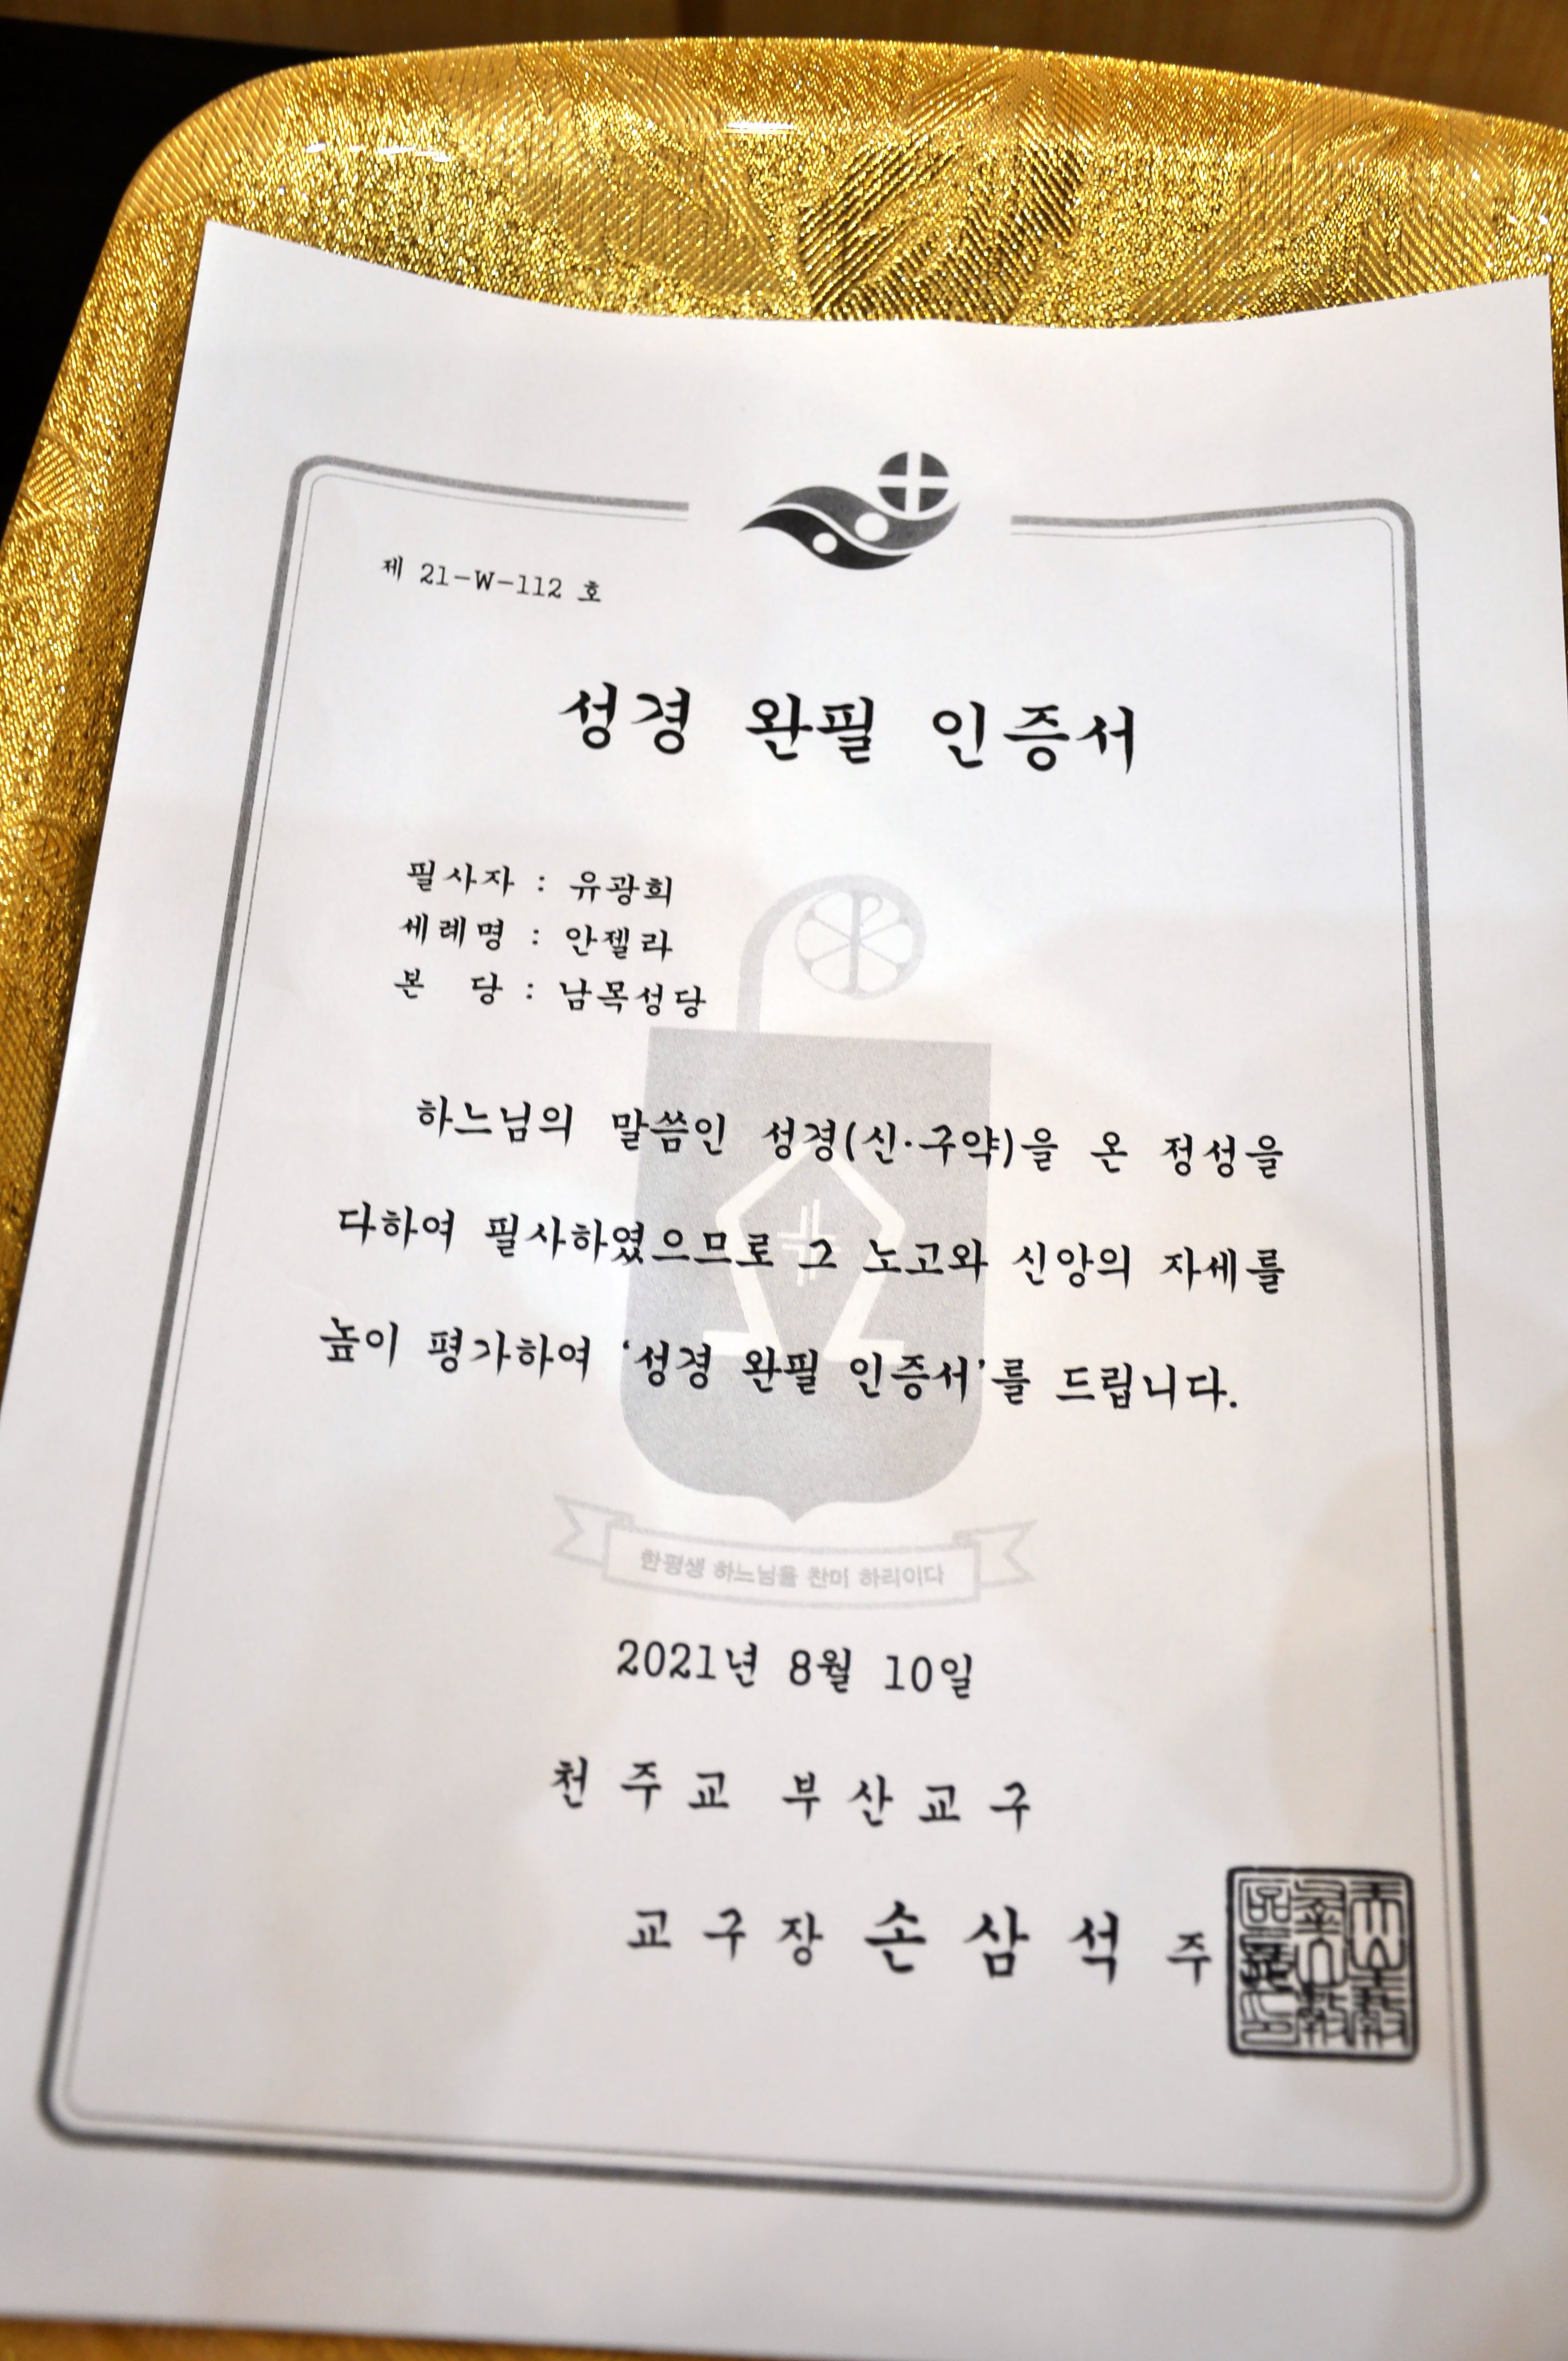 제 21-W-112 호
성경 완필 인증서
필사자 : 유광희
세례명 : 안젤라
본 당 : 남목성당
하느님의 말씀인 성경(신·구약)을 온 정성을
다하여 필사하였으므로 그 노고와 신앙의 자세를
높이 평가하여 ‘성경 완필 인증서’를 드립니다.
한평생 하느님을 찬미 하리이다
2021년 8월 10일
천 주 교 부 산 교 구
교 구 장 손 삼 석 주